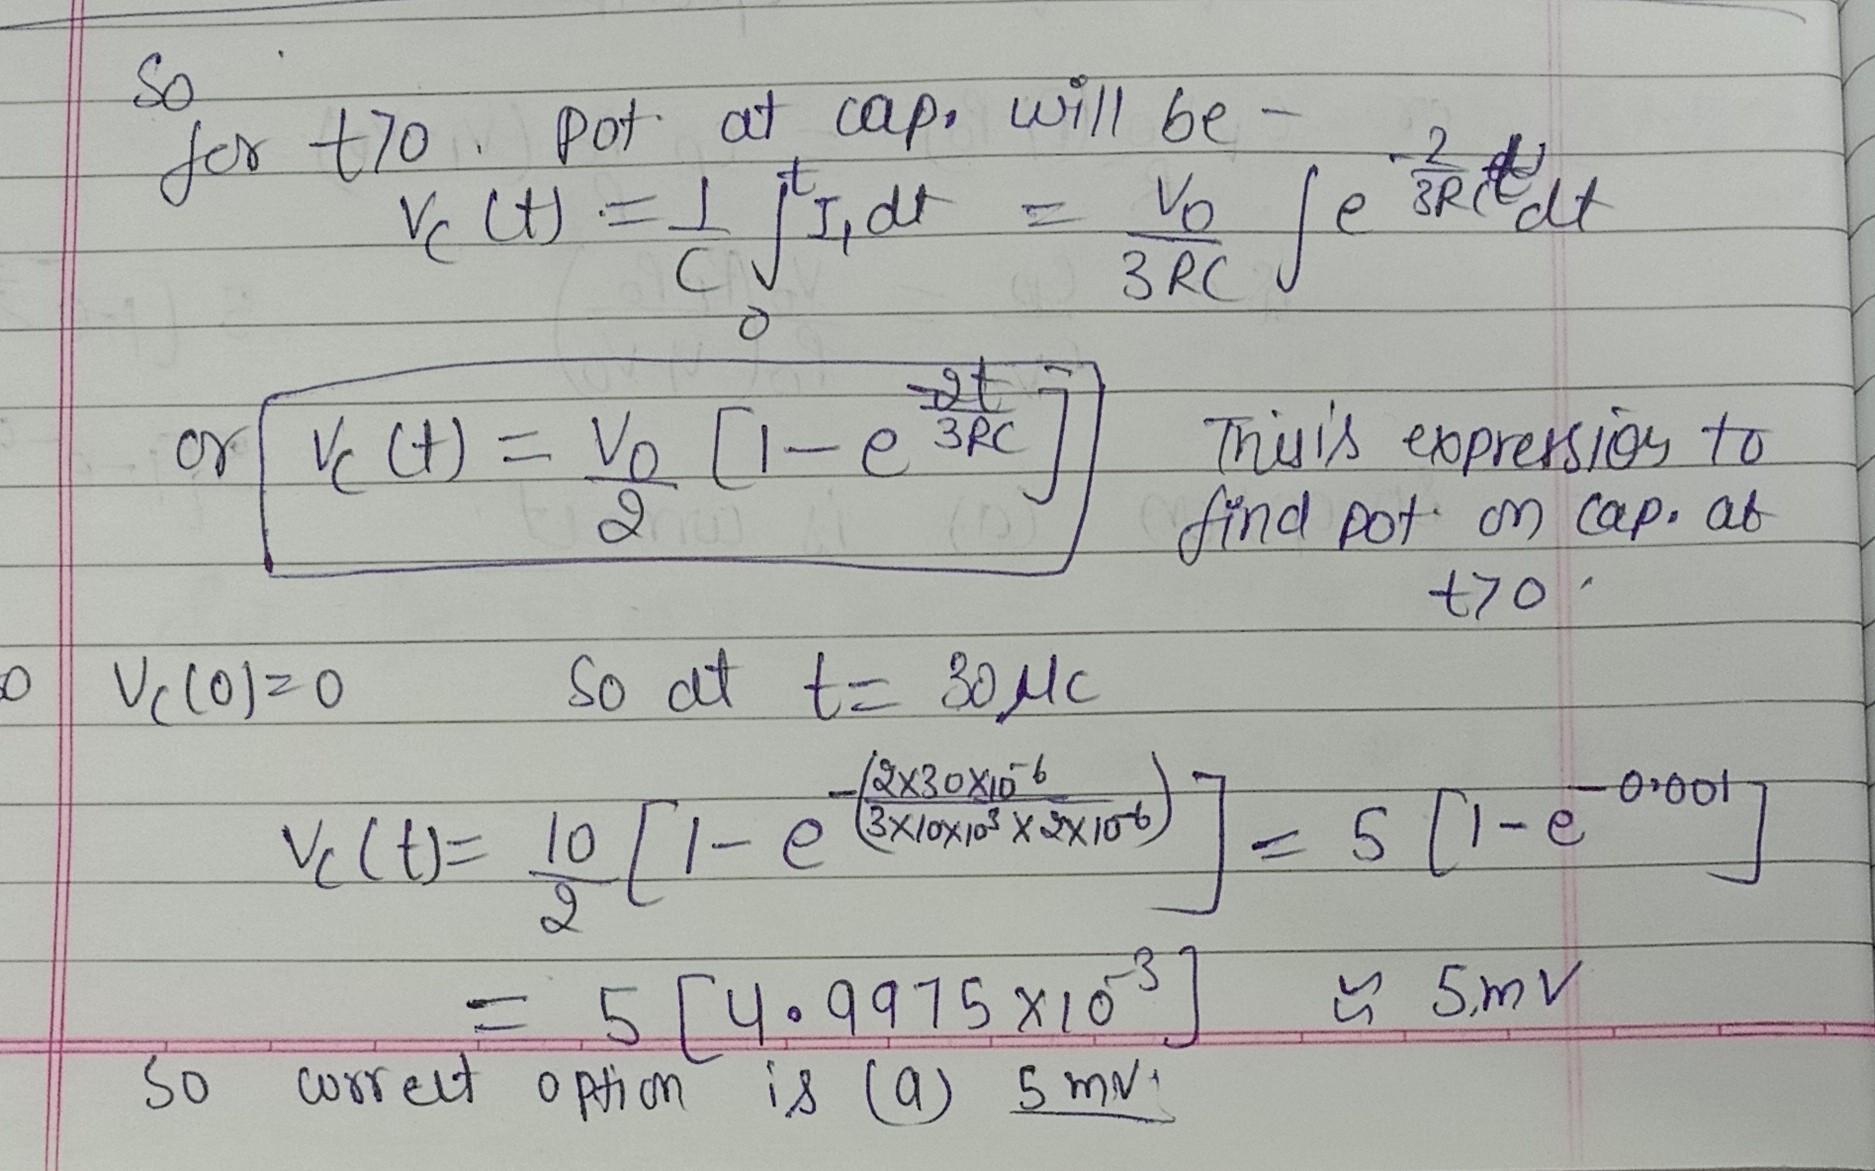 So
for t>0. pot. at cap. will be -
Vc (t) = 1/C ∫₀ᵗ I₁ dt = V₀/3RC ∫ e^(-2/3RC t) dt
or Vc (t) = V₀/2 [1 - e^(-2t/3RC)] This is expression to
find pot. on cap. at
t>0.
Vc(0)=0 So at t= 30 μc
Vc(t)= 10/2 [1 - e^-(2×30×10^-6/3×10×10^3×2×10^-6)] = 5 [1 - e^-0.001]
= 5 [4.9975×10^-3] ≈ 5mV
So correct option is (a) 5mV.